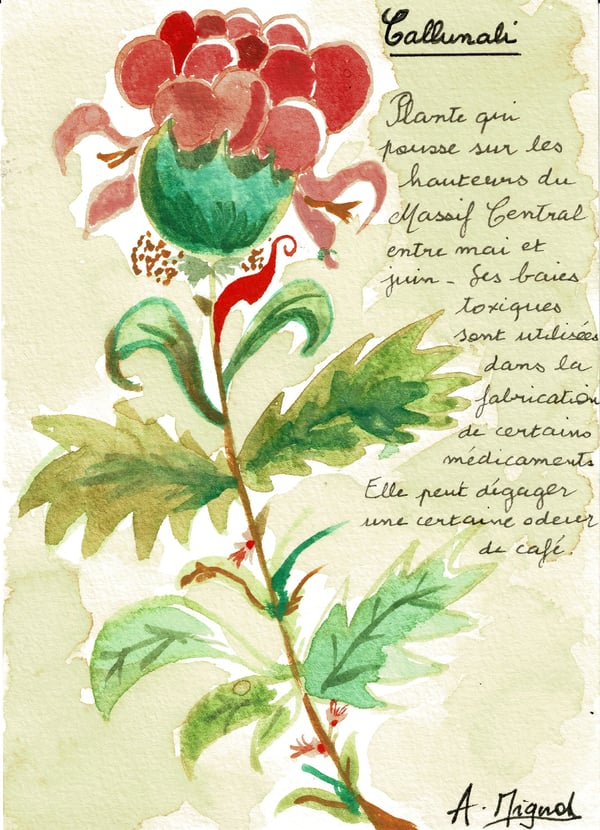 Callunali
Plante qui
pousse sur les
hauteurs du
Massif Central
entre mai et
juin - Ses baies
toxiques
sont utilisées
dans la
fabrication
de certains
médicaments
Elle peut dégager
une certaine odeur
de café.
A. Mignol